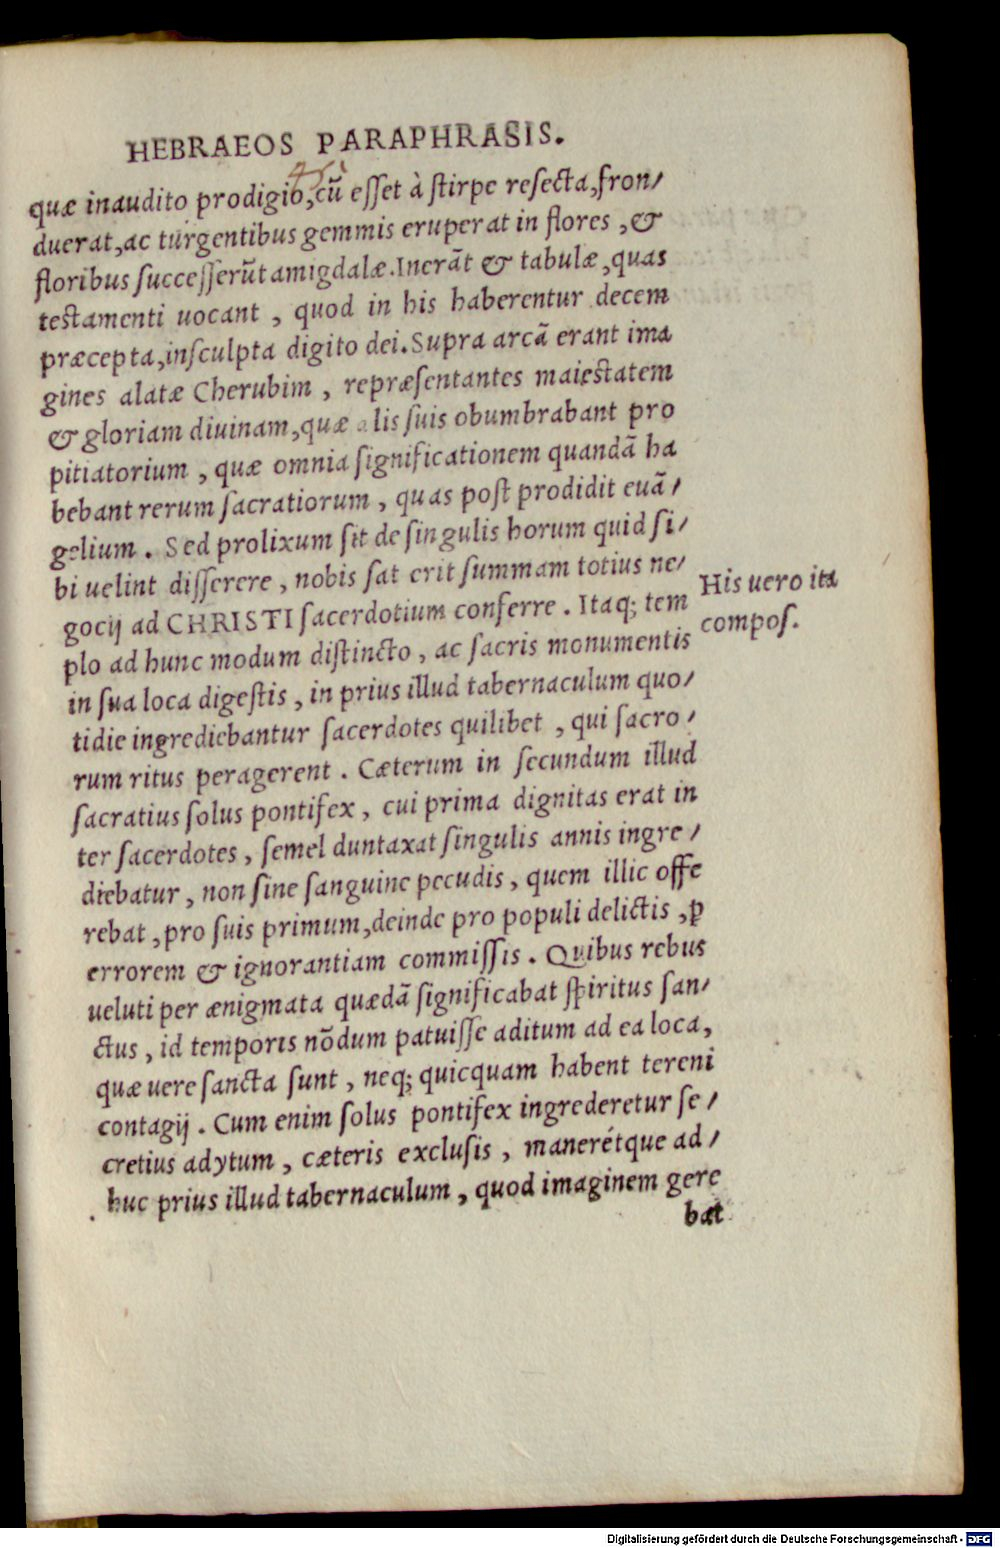 HEBRAEOS PARAPHRASIS.
quæ inaudito prodigio, cũ esset à ſtirpe reſecta, fron⸗
duerat, ac turgentibus gemmis eruperat in flores, &
floribus ſucceſſerũt amigdalæ. Inerãt & tabulæ, quas
teſtamenti uocant, quod in his haberentur decem
præcepta, inſculpta digito dei. Supra arcã erant ima
gines alatæ Cherubim, repræſentantes maieſtatem
& gloriam diuinam, quæ alis ſuis obumbrabant pro
pitiatorium, quæ omnia ſignificationem quandã ha
bebant rerum ſacratiorum, quas poſt prodidit euã⸗
gelium. Sed prolixum ſit de ſingulis horum quid ſi⸗
bi uelint diſſerere, nobis ſat erit ſummam totius ne⸗
gocij ad CHRISTI ſacerdotium conferre. Itaq; tem
plo ad hunc modum diſtincto, ac ſacris monumentis
in ſua loca digeſtis, in prius illud tabernaculum quo⸗
tidie ingrediebantur ſacerdotes quilibet, qui ſacro⸗
rum ritus peragerent. Cæterum in ſecundum illud
ſacratius ſolus pontifex, cui prima dignitas erat in
ter ſacerdotes, ſemel duntaxat ſingulis annis ingre⸗
diebatur, non ſine ſanguine pecudis, quem illic offe
rebat, pro ſuis primum, deinde pro populi delictis, ꝑ
errorem & ignorantiam commiſſis. Quibus rebus
ueluti per ænigmata quædã ſignificabat ſpiritus ſan⸗
ctus, id temporis nõdum patuiſſe aditum ad ea loca,
quæ uere ſancta ſunt, neq; quicquam habent tereni
contagij. Cum enim ſolus pontifex ingrederetur ſe⸗
cretius adytum, cæteris excluſis, manerétque ad⸗
huc prius illud tabernaculum, quod imaginem gere
bat
His uero ita
compoſ.
Digitalisierung gefördert durch die Deutsche Forschungsgemeinschaft - DFG